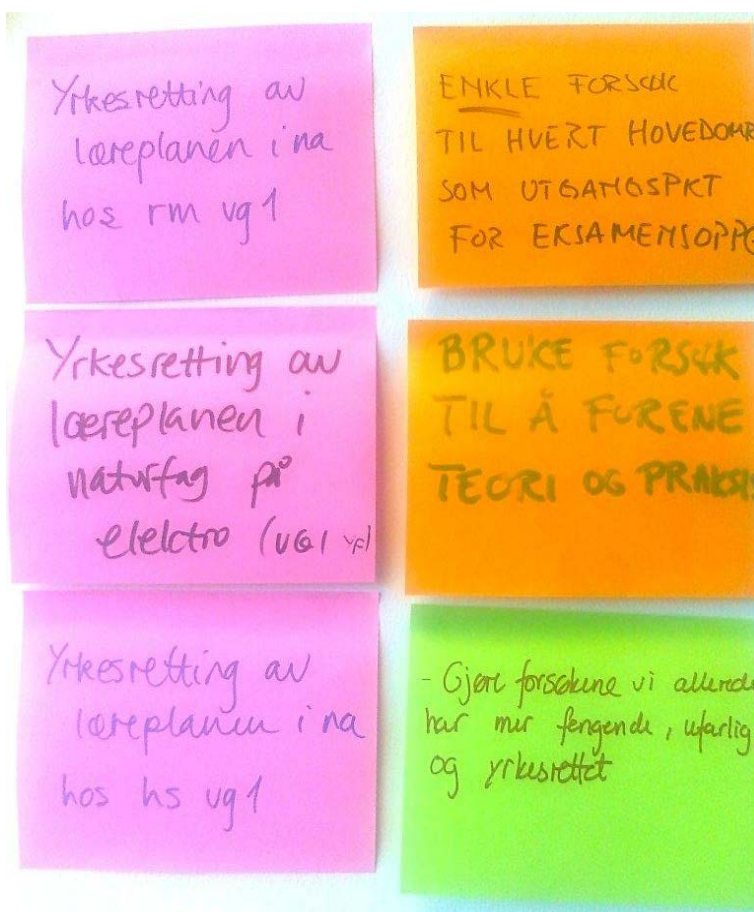 Yrkesretting av
læreplanen i na
hos rm vg1
Yrkesretting av
læreplanen i
naturfag på
elektro (VG1 YF)
Yrkesretting av
læreplanen i na
hos hs vg1
ENKLE FORSØK
TIL HVERT HOVEDOMR
SOM UTGANGSPKT
FOR EKSAMENSOPPG
BRUKE FORSØK
TIL Å FORENE
TEORI OG PRAKSIS
- Gjøre forsøkene vi allerede
har mer fengende, ufarlig
og yrkesrettet